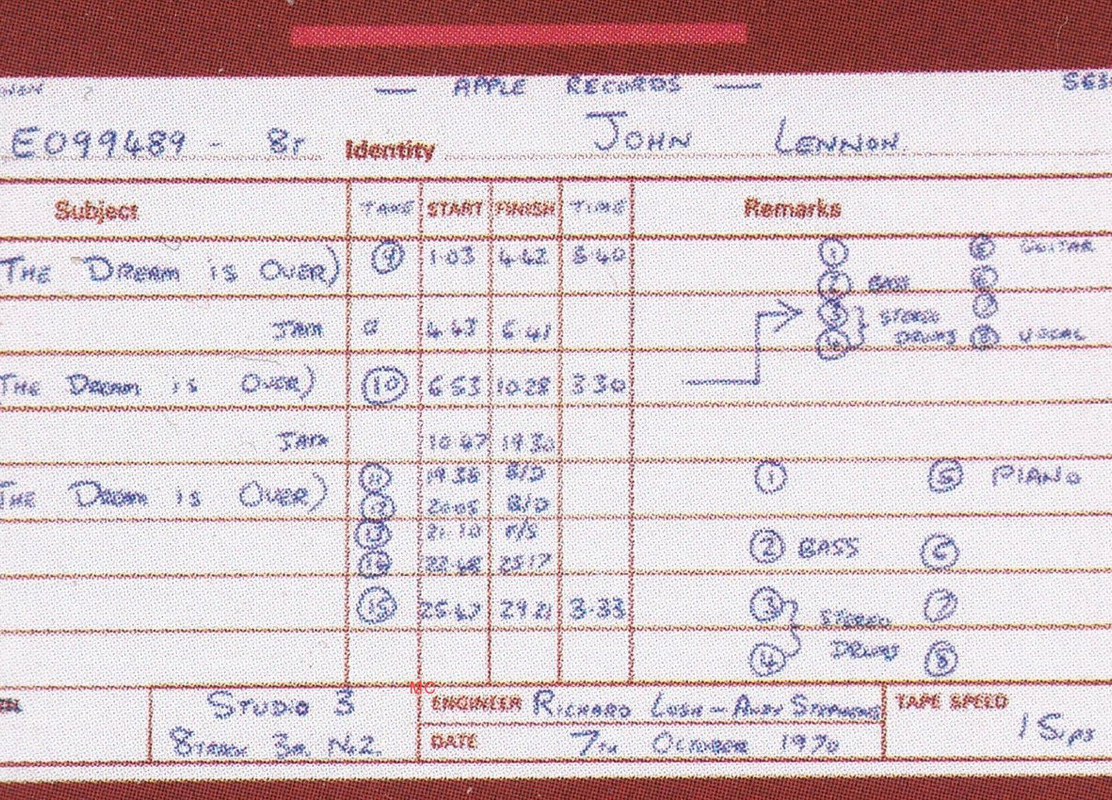 — APPLE RECORDS —
E099489 - 8T Identity JOHN LENNON.
Subject TAKE START FINISH TIME Remarks
THE DREAM IS OVER) 9 1.03 4.42 3.40 ① ⑤ GUITAR
② BASS ⑥
JAM 4.43 6.41 ③ } STEREO ⑦
④ DRUMS ⑧ VOCAL
THE DREAM IS OVER) ⑩ 6 53 10 28 3 30
JAM 10 47 19 30
⑪ 19 38 B/D ① ⑤ PIANO
THE DREAM IS OVER) ⑫ 20 05 B/D
⑬ 21 10 F/S
⑭ 22 48 25 17 ② BASS ⑥
⑮ 25 47 29 21 3.33 ③ } STEREO ⑦
④ DRUMS ⑧
STUDIO 3 ENGINEER RICHARD LUSH - ANDY STEPHENS TAPE SPEED
8 TRACK 3M No 2. DATE 7TH OCTOBER 1970 15 ips